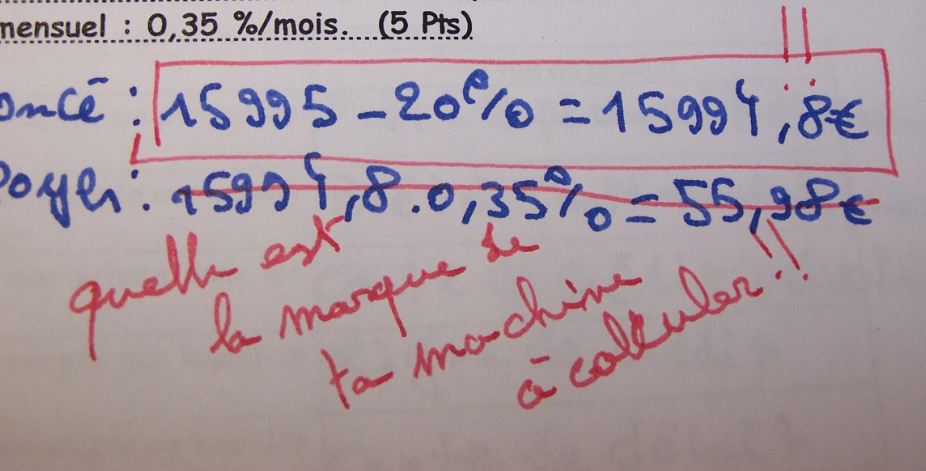 mensuel : 0,35 %/mois. (5 Pts)
!!
oncé : 15995 - 20% = 15994,8€
Payer : 15994,8 . 0,35% = 55,98€
quelle est
la marque de
ta machine
à calculer !!